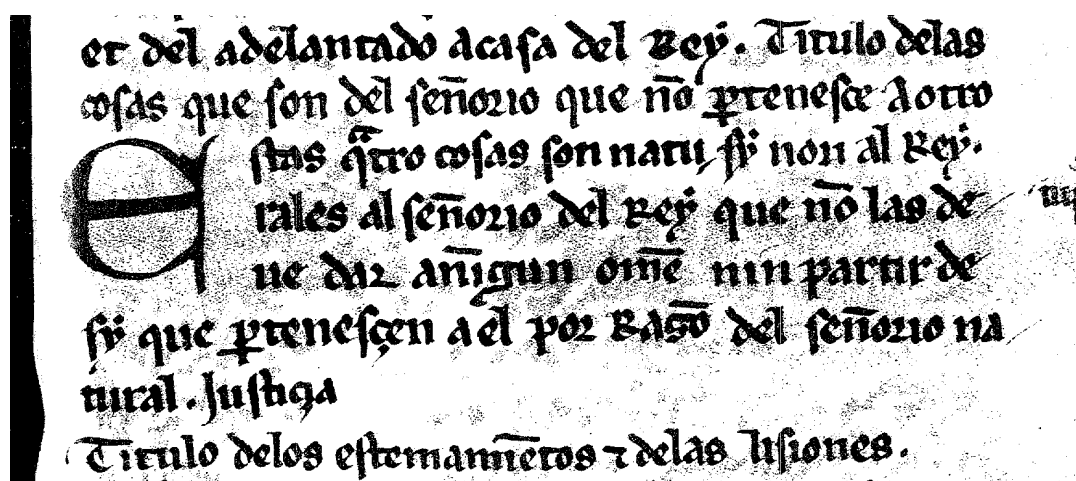 et del adelantado acasa del Rey. Titulo delas
cosas que son del señorio que nõ ꝑtenesçe Aotro
Estas qᵃtro cosas son natu sy non al Rey.
rales al señorio del Rey que nõ las de
ue dar añigun om̃e nin partir de
sy que ꝑtenesçen a el por Rasõ del señorio na
tural. Justiçia
Titulo delos estemamiẽtos ⁊ delas lisiones.